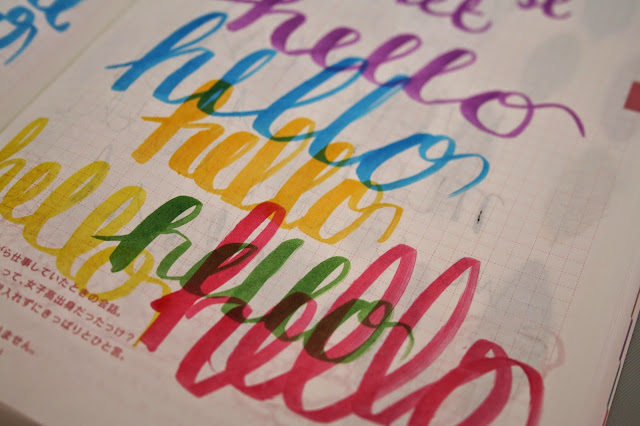 hello
hello
hello
hello
hello
hello
がら仕事していたときの会話。
って、女子高出身だったっけ?
入れずにきっぱりとひと言。
ません。